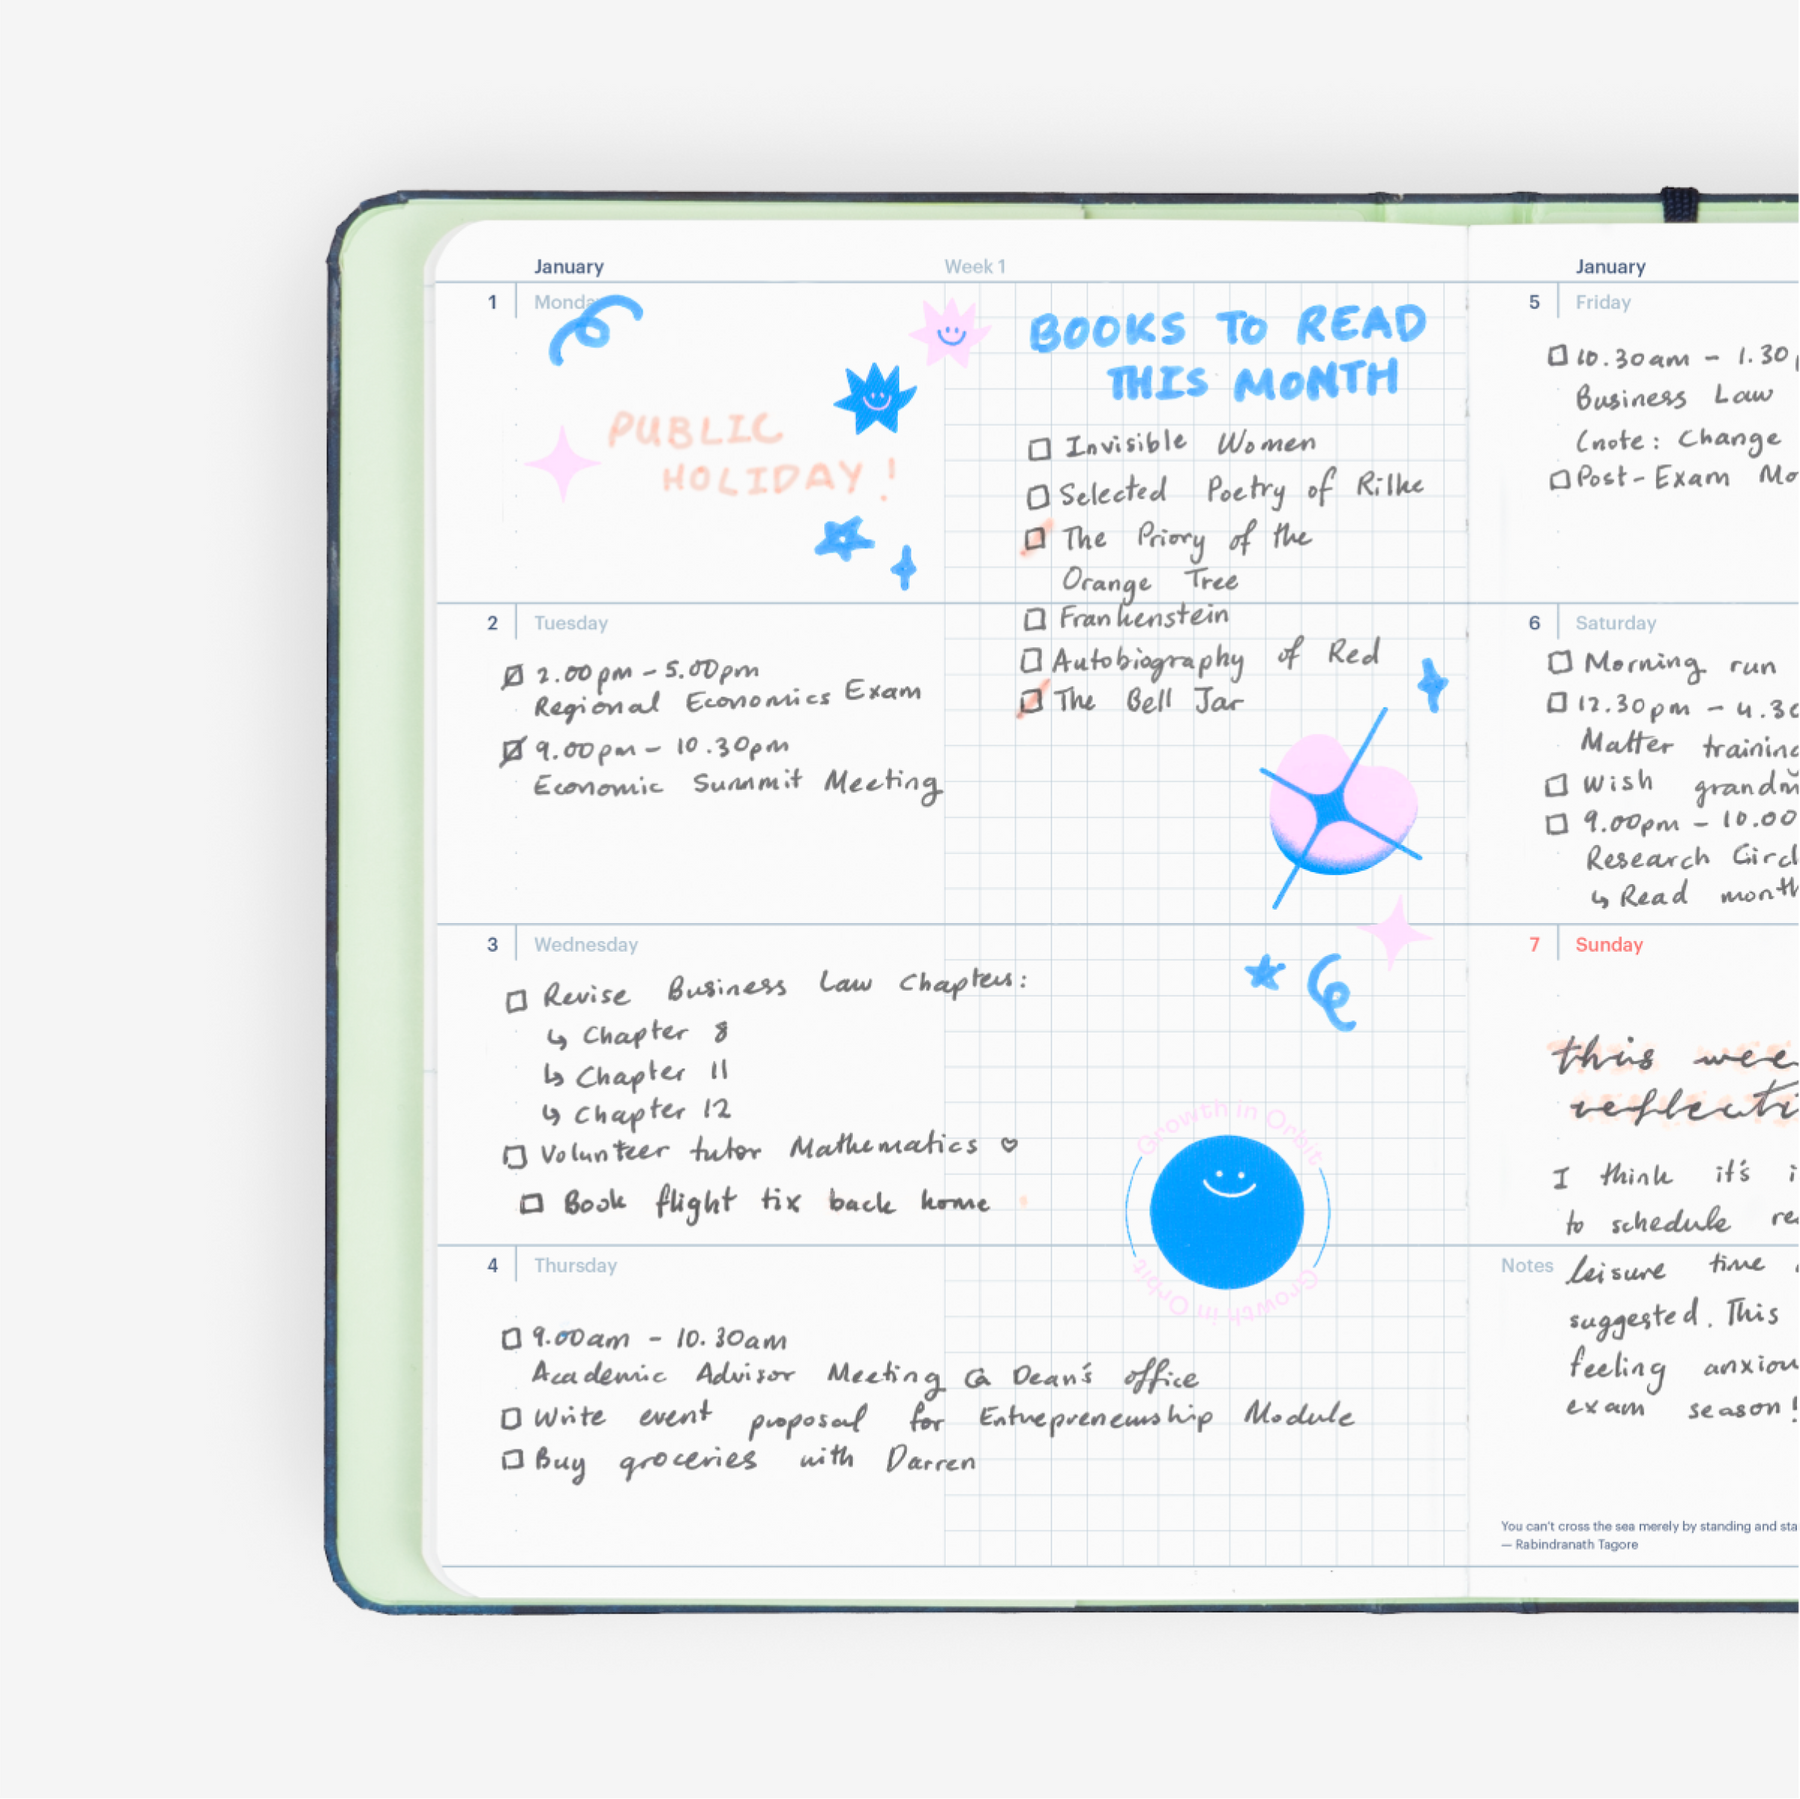 January
Week 1
1
Monda
PUBLIC
HOLIDAY!
BOOKS TO READ
THIS MONTH
Invisible Women
Selected Poetry of Rilke
The Priory of the
Orange Tree
Frankenstein
Autobiography of Red
The Bell Jar
2
Tuesday
2.00pm - 5.00pm
Regional Economics Exam
9.00pm - 10.30pm
Economic Summit Meeting
3
Wednesday
Revise Business Law Chapters:
↳ Chapter 8
↳ Chapter 11
↳ Chapter 12
Volunteer tutor Mathematics ♡
Book flight tix back home
Growth in Orbit
Growth in Orbit
4
Thursday
9.00am - 10.30am
Academic Advisor Meeting @ Dean's office
Write event proposal for Entrepreneurship Module
Buy groceries with Darren
January
5
Friday
10.30am - 1.30
Business Law
(note: Change
Post-Exam Mo
6
Saturday
Morning run
12.30pm - 4.30
Matter training
Wish grandm
9.00pm - 10.00
Research Circl
↳ Read month
7
Sunday
this wee
reflecti
I think it's i
to schedule re
Notes
leisure time
suggested. This
feeling anxiou
exam season!
You can't cross the sea merely by standing and sta
— Rabindranath Tagore